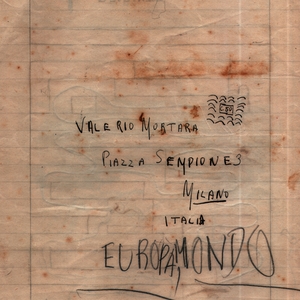 VALERIO MORTARA
PIAZZA SEMPIONE 3
MILANO
ITALIA
EUROPA, MONDO